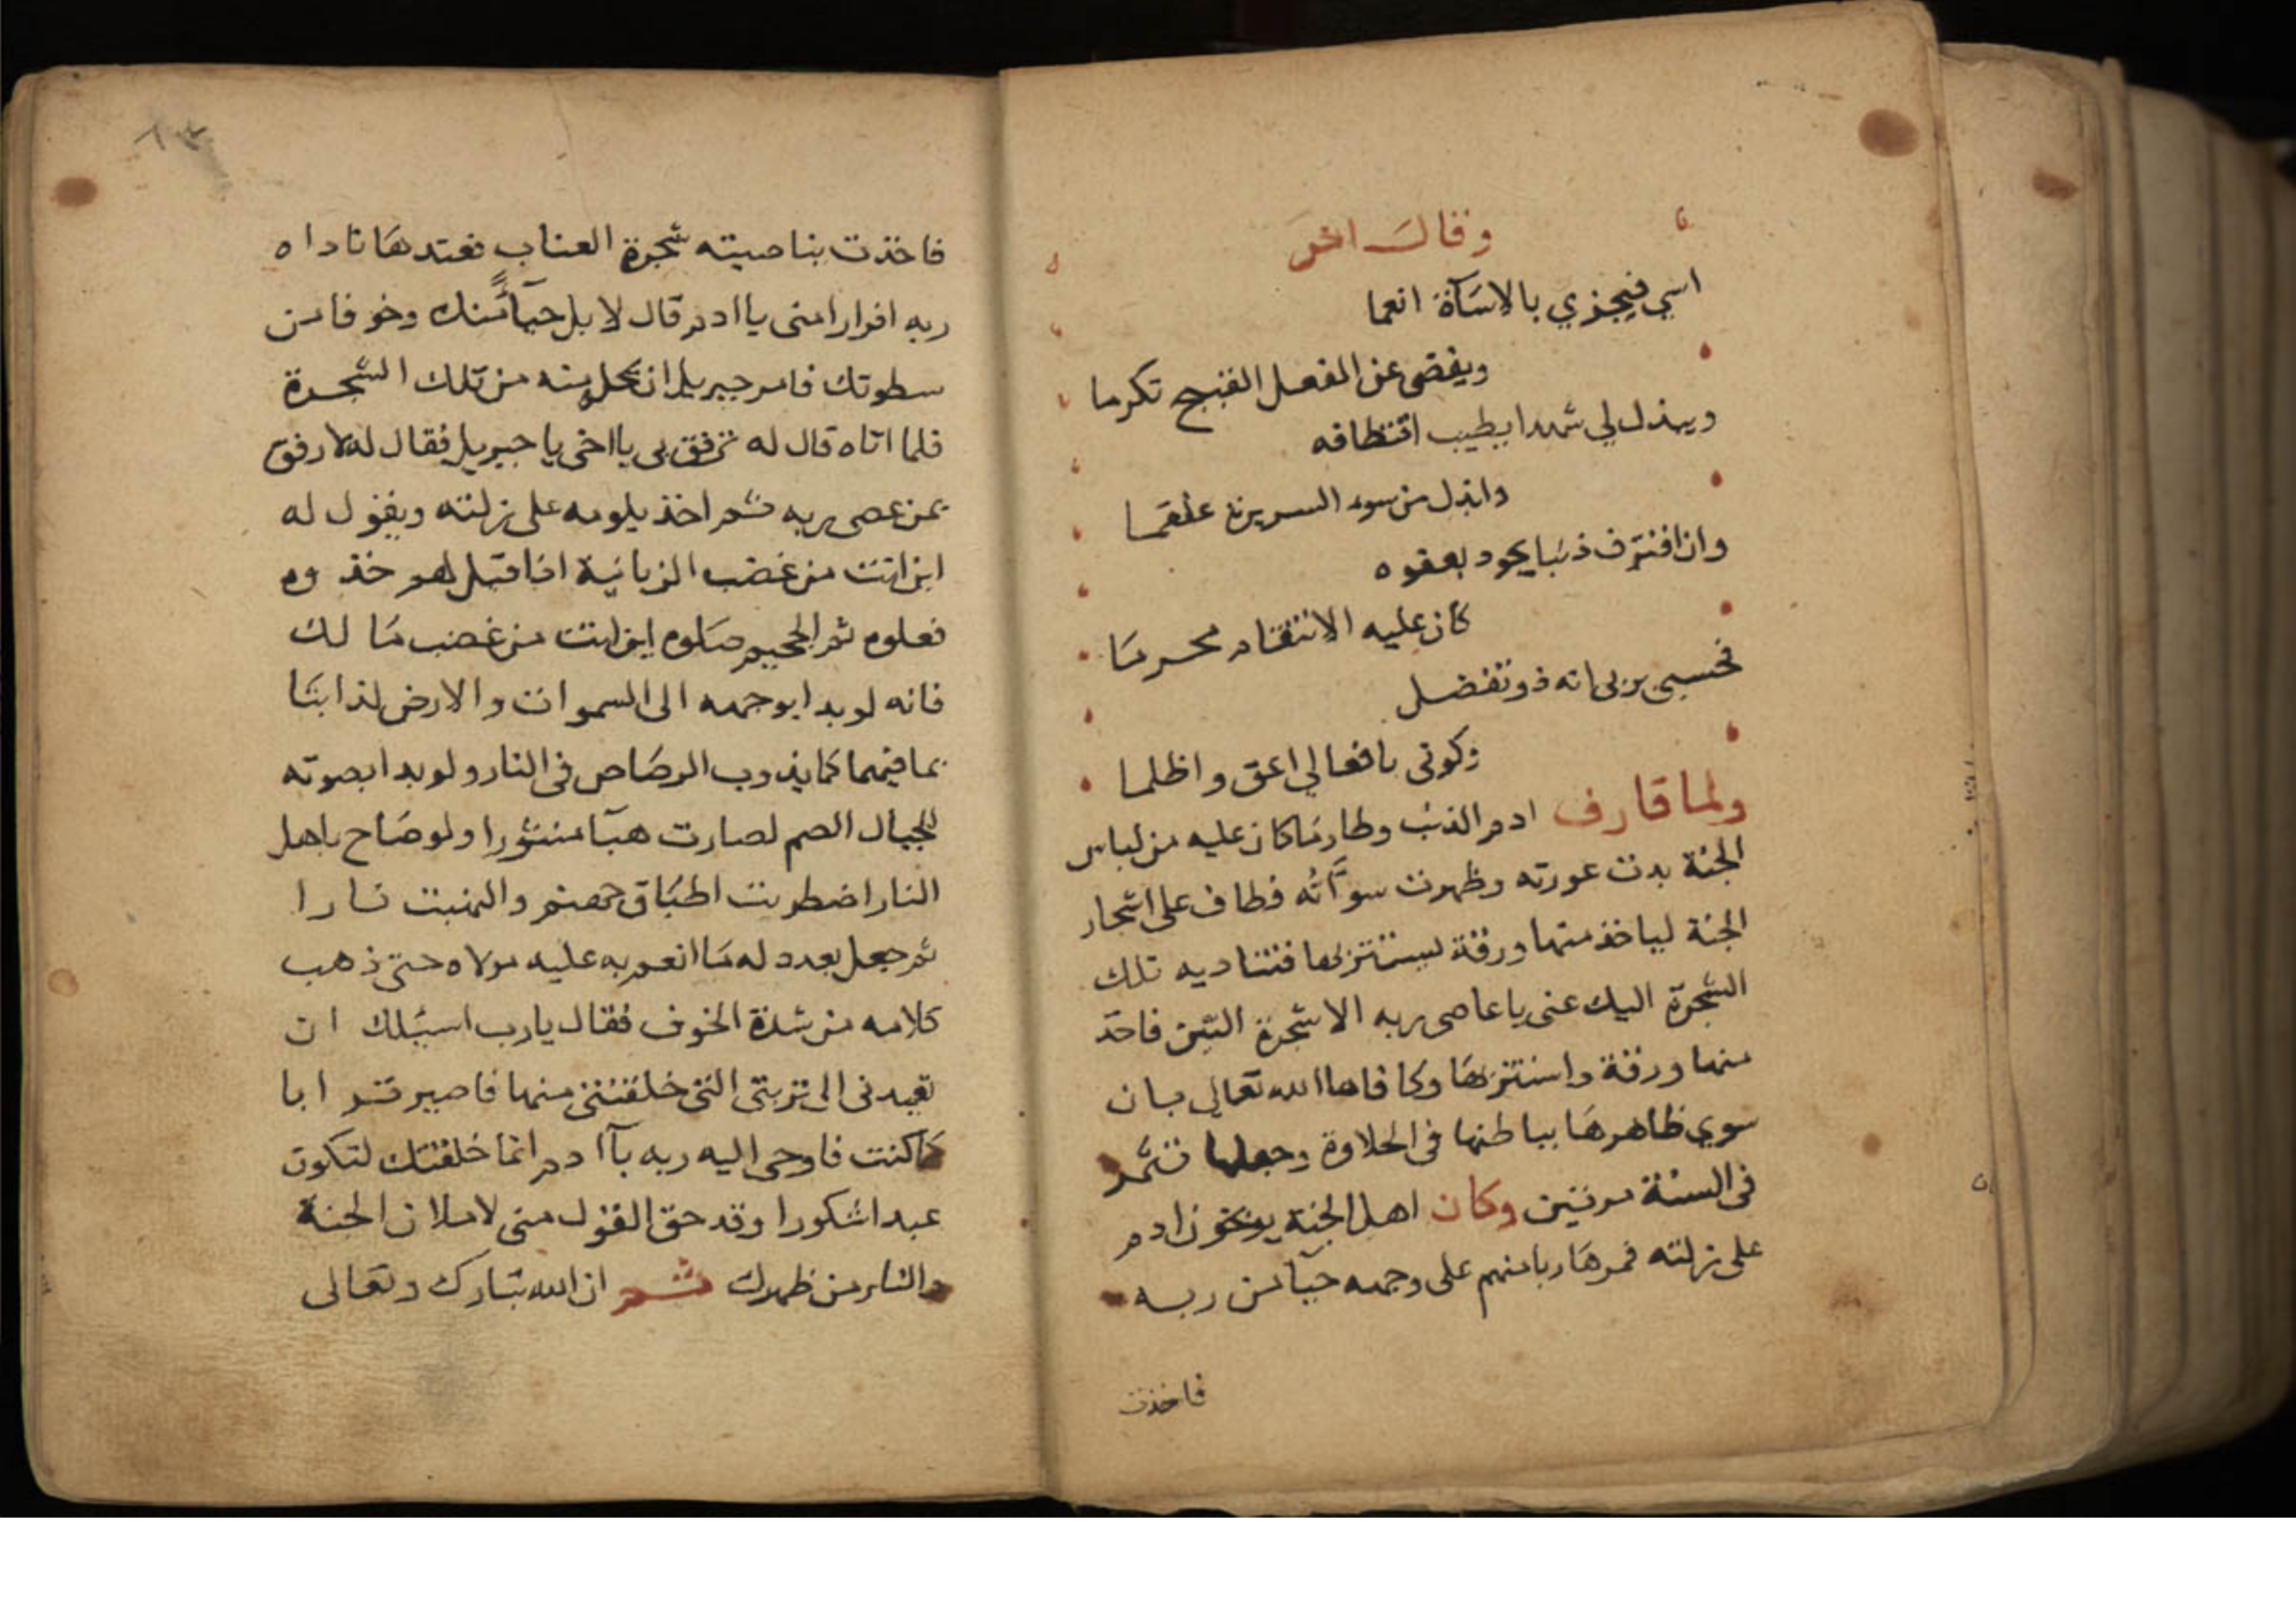 وقال اخر
اسي فيجزي بالاسآة انعما
ويغضي عن الفعل القبيح تكرما
ويبذل لي شهدا يطيب اقتطافه
وابذل من سوء السريرة علقما
وان اقترف ذنبا يجود بعفوه
كان عليه الانتقام محرما
فحسبي بربي انه ذو تفضل
وكوني بافعالي اعق واظلما
ولما قارف ادم الذنب وطار ما كان عليه من لباس
الجنة بدت عورته وظهرت سوآته فطاف على اشجار
الجنة لياخذ منها ورقة ليستتر بها فتناديه تلك
الشجرة اليك عني يا عاصي ربه الا شجرة التين فاخذ
منها ورقة واستتر بها وكافاها الله تعالى بان
سوي ظاهرها بباطنها في الحلاوة وجعلها تثمر
في السنة مرتين وكان اهل الجنة يوبخون ادم
على زلته فمر هاربا منهم على وجهه حيآ من ربه
فاخذت
١٣
فاخذت بناصيته شجرة العناب فعندها ناداه
ربه افرارا مني يا ادم قال لا بل حيآء منك وخوفا من
سطوتك فامر جبريل ان يحل منه من تلك الشجرة
فلما اتاه قال له ترفق بي يا اخي يا جبريل فقال له لا رفق
بمن عصى ربه ثم اخذ يلومه على زلته ويقول له
اين انت من غضب الزبانية اذا قيل لهم خذوه
فغلوه ثم الجحيم صلوه اين انت من غضب مالك
فانه لو بدا بوجهه الى السموات والارض لذابتا
بما فيهما كما يذوب الرصاص في النار ولو بدا بصوته
للجبال الصم لصارت هبآ منثورا ولو صاح باهل
النار اضطربت اطباق جهنم والتهبت نارا
ثم جعل يعدد له ما انعم به عليه مولاه حتى ذهب
كلامه من شدة الخوف فقال يا رب اسئلك ان
تعيدني الى تربتي التي خلقتني منها فاصير ترابا
كما كنت فاوحى اليه ربه يآ ادم انما خلقتك لتكون
عبدا شكورا وقد حق القول مني لاملان الجنة
والنار من ظهرك ثم ان الله تبارك وتعالى